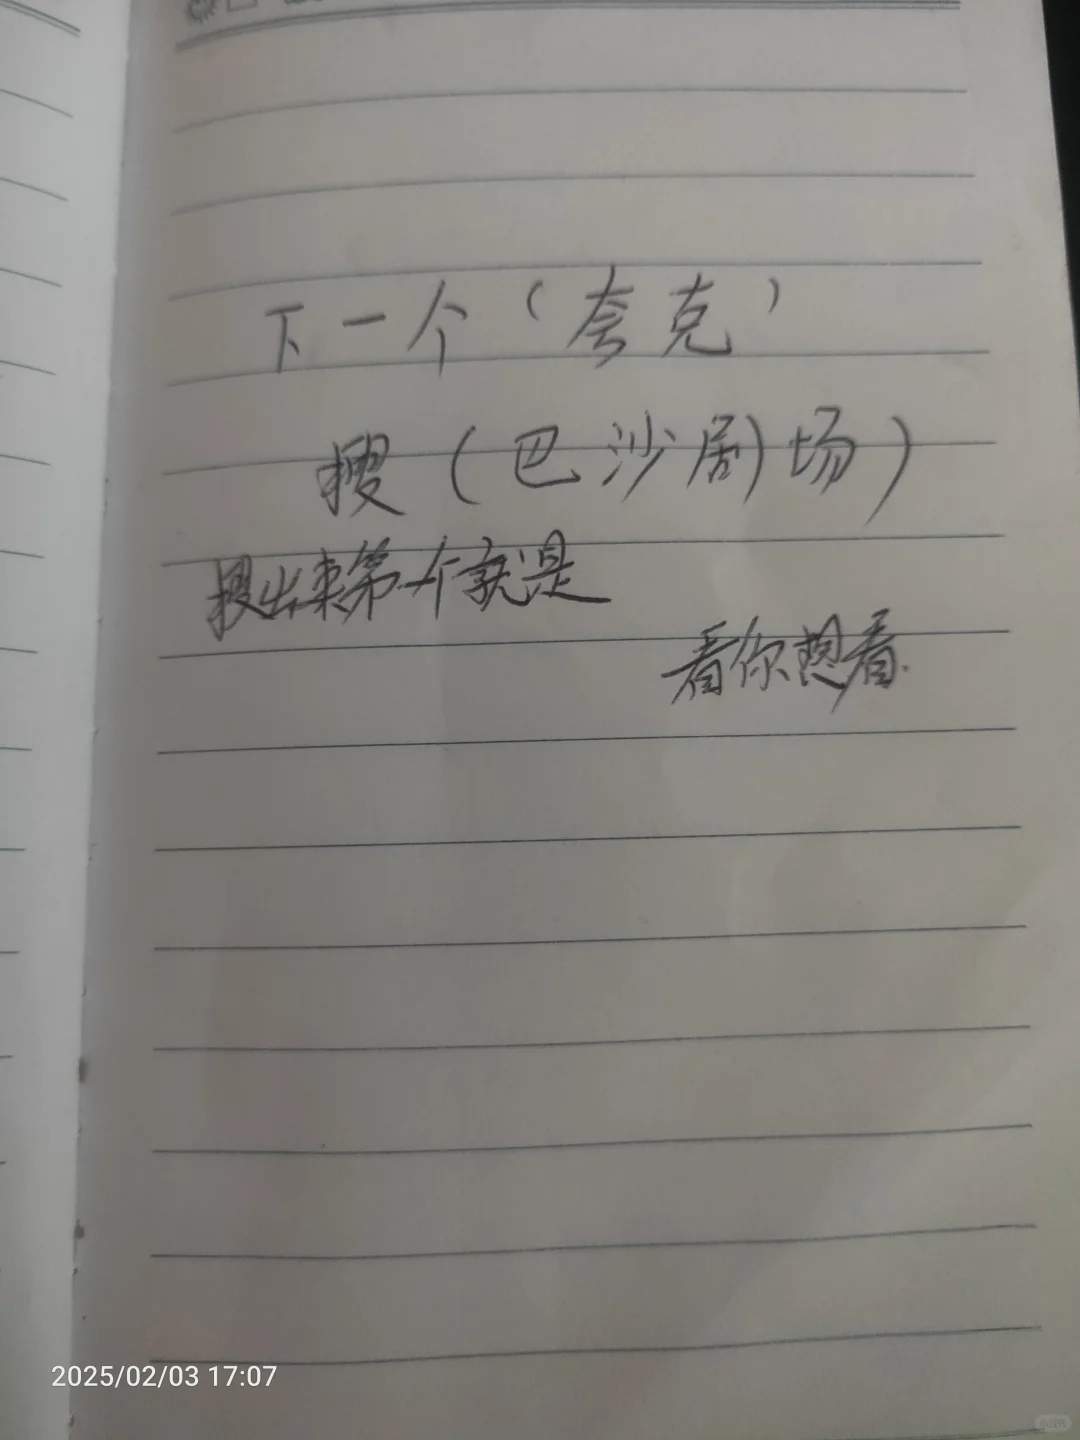 下一个（夸克）
搜（巴沙剧场）
搜出来第一个就是
看你想看.
2025/02/03 17:07